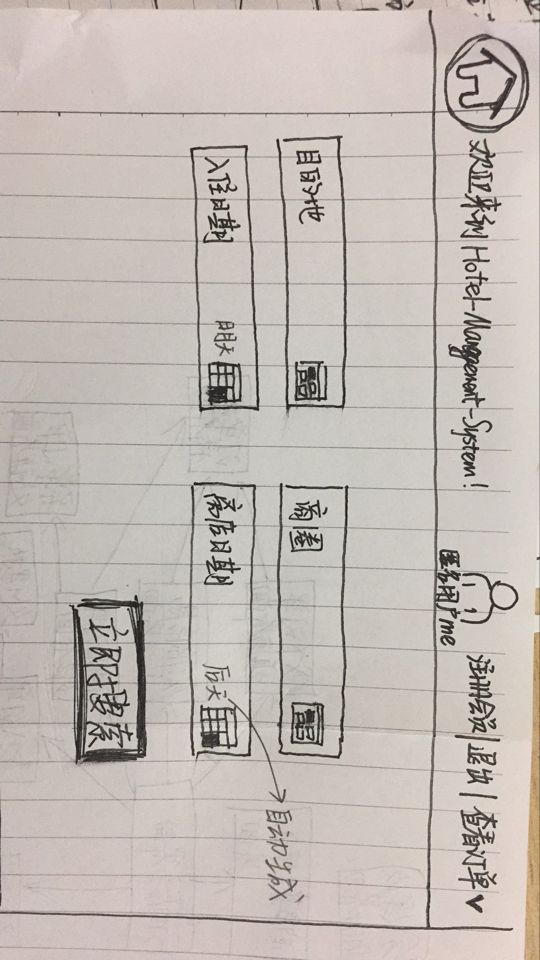 欢迎来到Hotel-Management-System!
匿名用户me
注册会员|退出|查看订单
目的地
商圈
入住日期 明天
离店日期 后天
自动生成
立即搜索